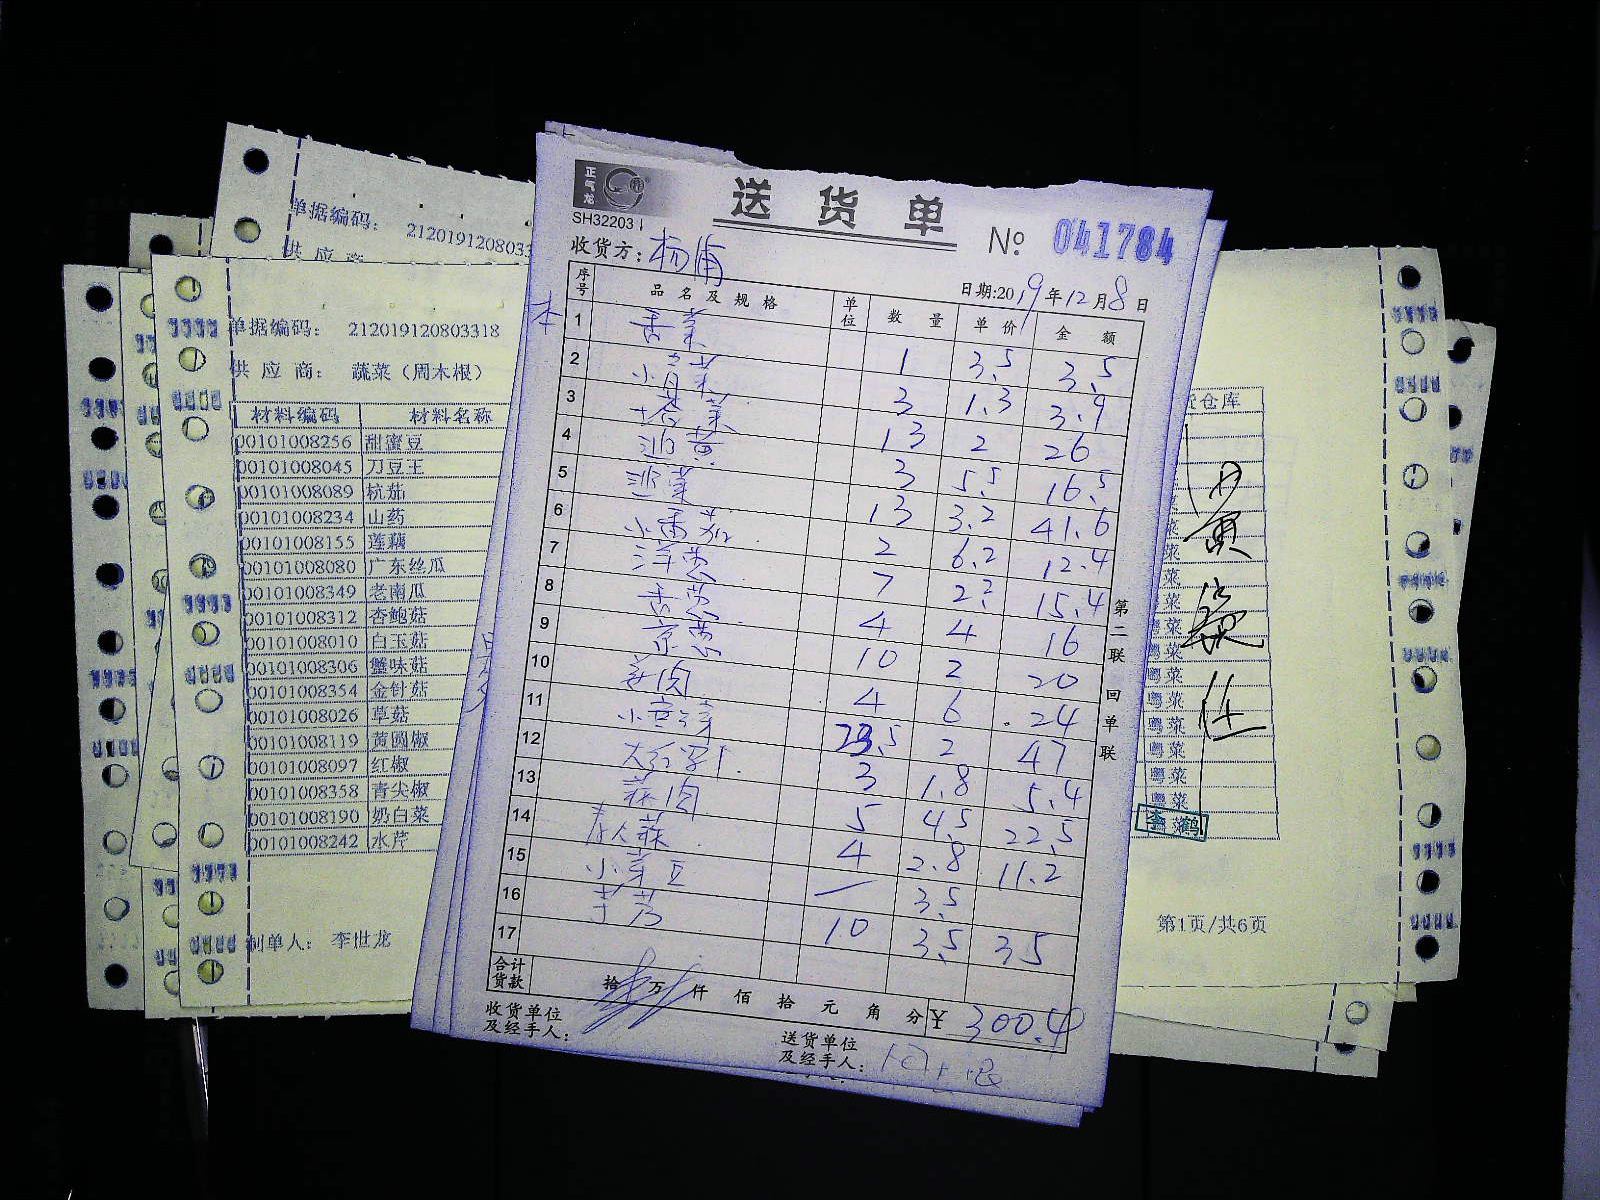 单据编码： 2120191208033
供 应 商
单据编码： 212019120803318
供 应 商： 蔬菜（周木根）
材料编码 材料名称
00101008256 甜蜜豆
00101008045 刀豆王
00101008089 杭茄
00101008234 山药
00101008155 莲藕
00101008080 广东丝瓜
00101008349 老南瓜
00101008312 杏鲍菇
00101008010 白玉菇
00101008306 蟹味菇
00101008354 金针菇
00101008026 草菇
00101008119 黄圆椒
00101008097 红椒
00101008358 青尖椒
00101008190 奶白菜
00101008242 水芹
制单人： 李世龙
正气龙
SH32203
送货单
№ 041784
收货方：杨浦
日期:2019年12月8日
序号 品名及规格 单位 数量 单价 金额
1 香菜 1 3.5 3.5
2 小青菜 3 1.3 3.9
3 塔菜 13 2 26
4 3 5.5 16.5
5 13 3.2 41.6
6 2 6.2 12.4
7 洋葱 7 2.2 15.4
8 香葱 4 4 16
9 京葱 10 2 20
10 姜肉 4 6 24
11 23.5 2 47
12 3 1.8 5.4
13 蒜肉 5 4.5 22.5
14 4 2.8 11.2
15 小芋艿 — 3.5
16 芋艿 10 3.5 35
17
合计货款 拾 万 仟 佰 拾 元 角 分 ¥ 300.4
收货单位及经手人：
送货单位及经手人：
第二联 回单联
货仓库
菜
菜
菜
菜
粤菜
粤菜
粤菜
粤菜
粤菜
粤菜
粤菜
粤菜
第1页/共6页